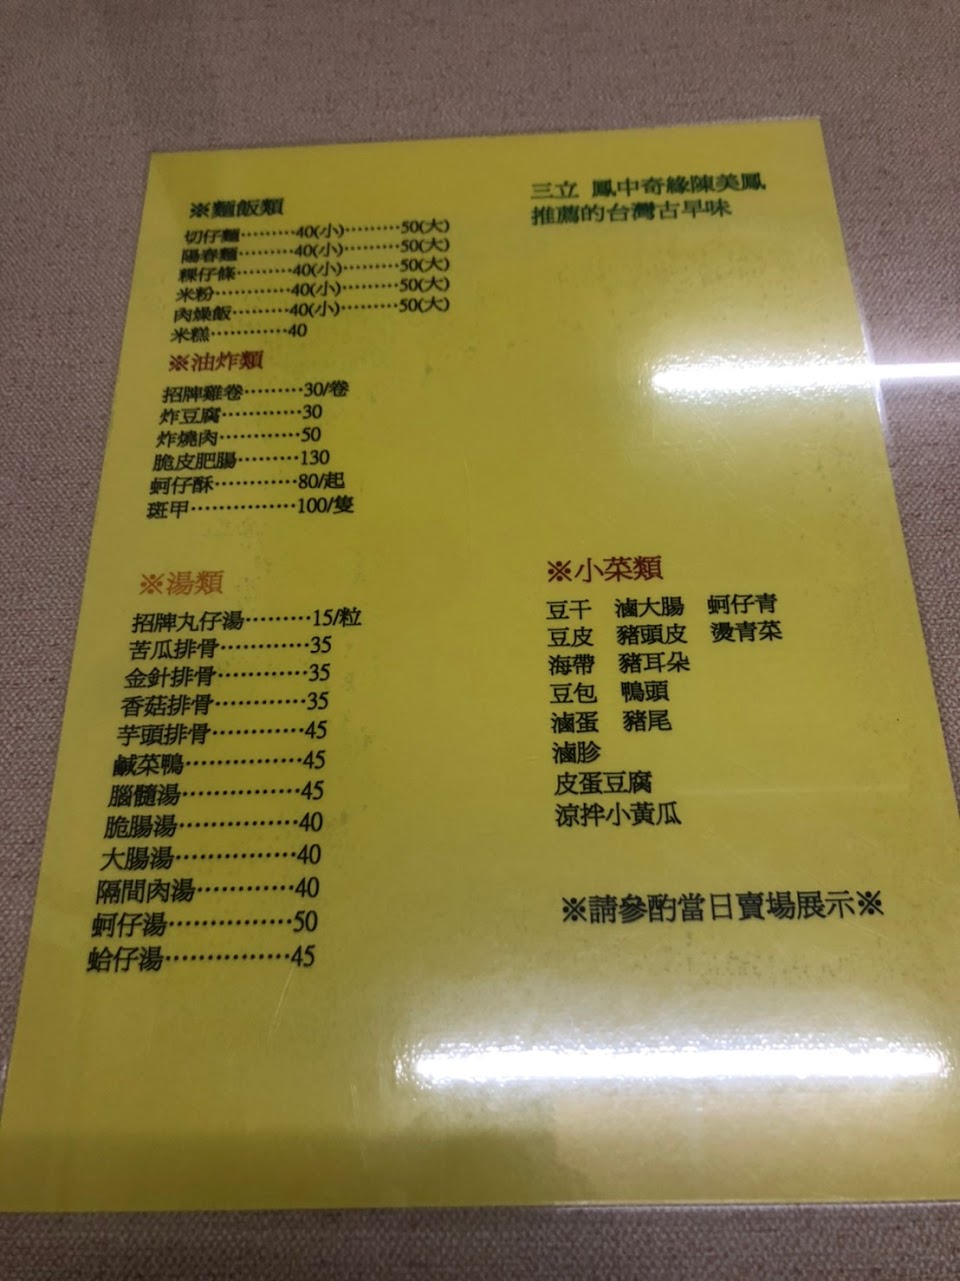 三立 鳳中奇緣陳美鳳
推薦的台灣古早味
※麵飯類
切仔麵………40(小)………50(大)
陽春麵………40(小)………50(大)
粿仔條………40(小)………50(大)
米粉…………40(小)………50(大)
肉燥飯………40(小)………50(大)
米糕…………40
※油炸類
招牌雞卷………30/卷
炸豆腐…………30
炸燒肉…………50
脆皮肥腸………130
蚵仔酥…………80/起
斑甲……………100/隻
※湯類
招牌丸仔湯………15/粒
苦瓜排骨…………35
金針排骨…………35
香菇排骨…………35
芋頭排骨…………45
鹹菜鴨……………45
腦髓湯……………45
脆腸湯……………40
大腸湯……………40
隔間肉湯…………40
蚵仔湯……………50
蛤仔湯……………45
※小菜類
豆干 滷大腸 蚵仔青
豆皮 豬頭皮 燙青菜
海帶 豬耳朵
豆包 鴨頭
滷蛋 豬尾
滷胗
皮蛋豆腐
涼拌小黃瓜
※請參酌當日賣場展示※